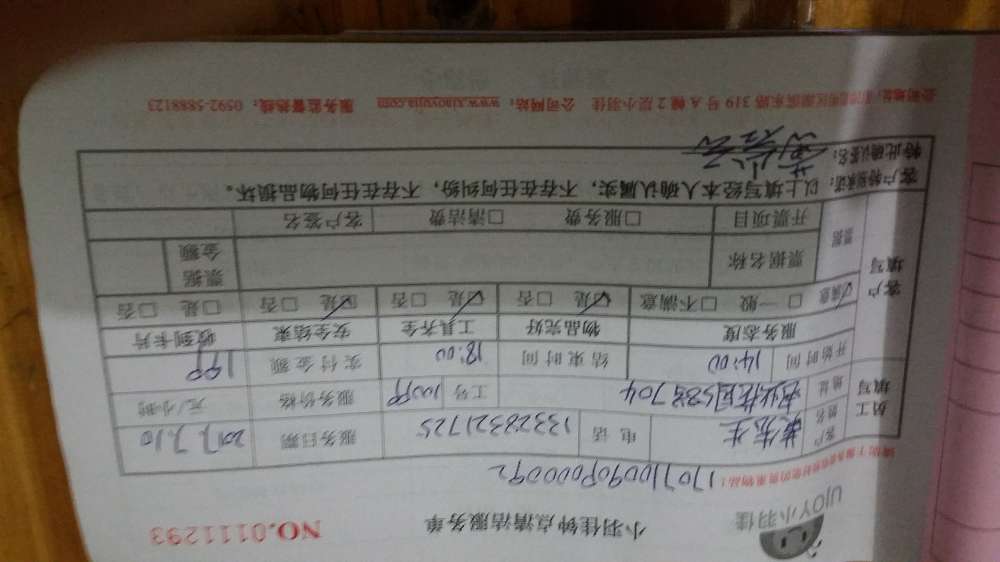 UJOY小羽佳
小羽佳钟点清洁服务单
NO.0111293
员工填写
客户姓名
先生
电话
13328321725
服务日期
2017.7.10
地址
704
工号
服务价格
元/小时
开始时间
14:00
结束时间
18:00
实付金额
199
客户填写
服务态度
物品完好
工具齐全
安全结束
收到卡片
☑满意 □一般 □不满意
☑是 □否
☑是 □否
☑是 □否
□是 □否
票据
票据名称
票据金额
开票项目
□服务费 □清洁费
客户签名
客户特别承诺：以上填写经本人确认属实，不存在任何纠纷，不存在任何物品损坏。
特此确认签名：
319号A幢2层小羽佳 公司网站：www.xiaoyujia.com 服务监督热线：0592-5888123